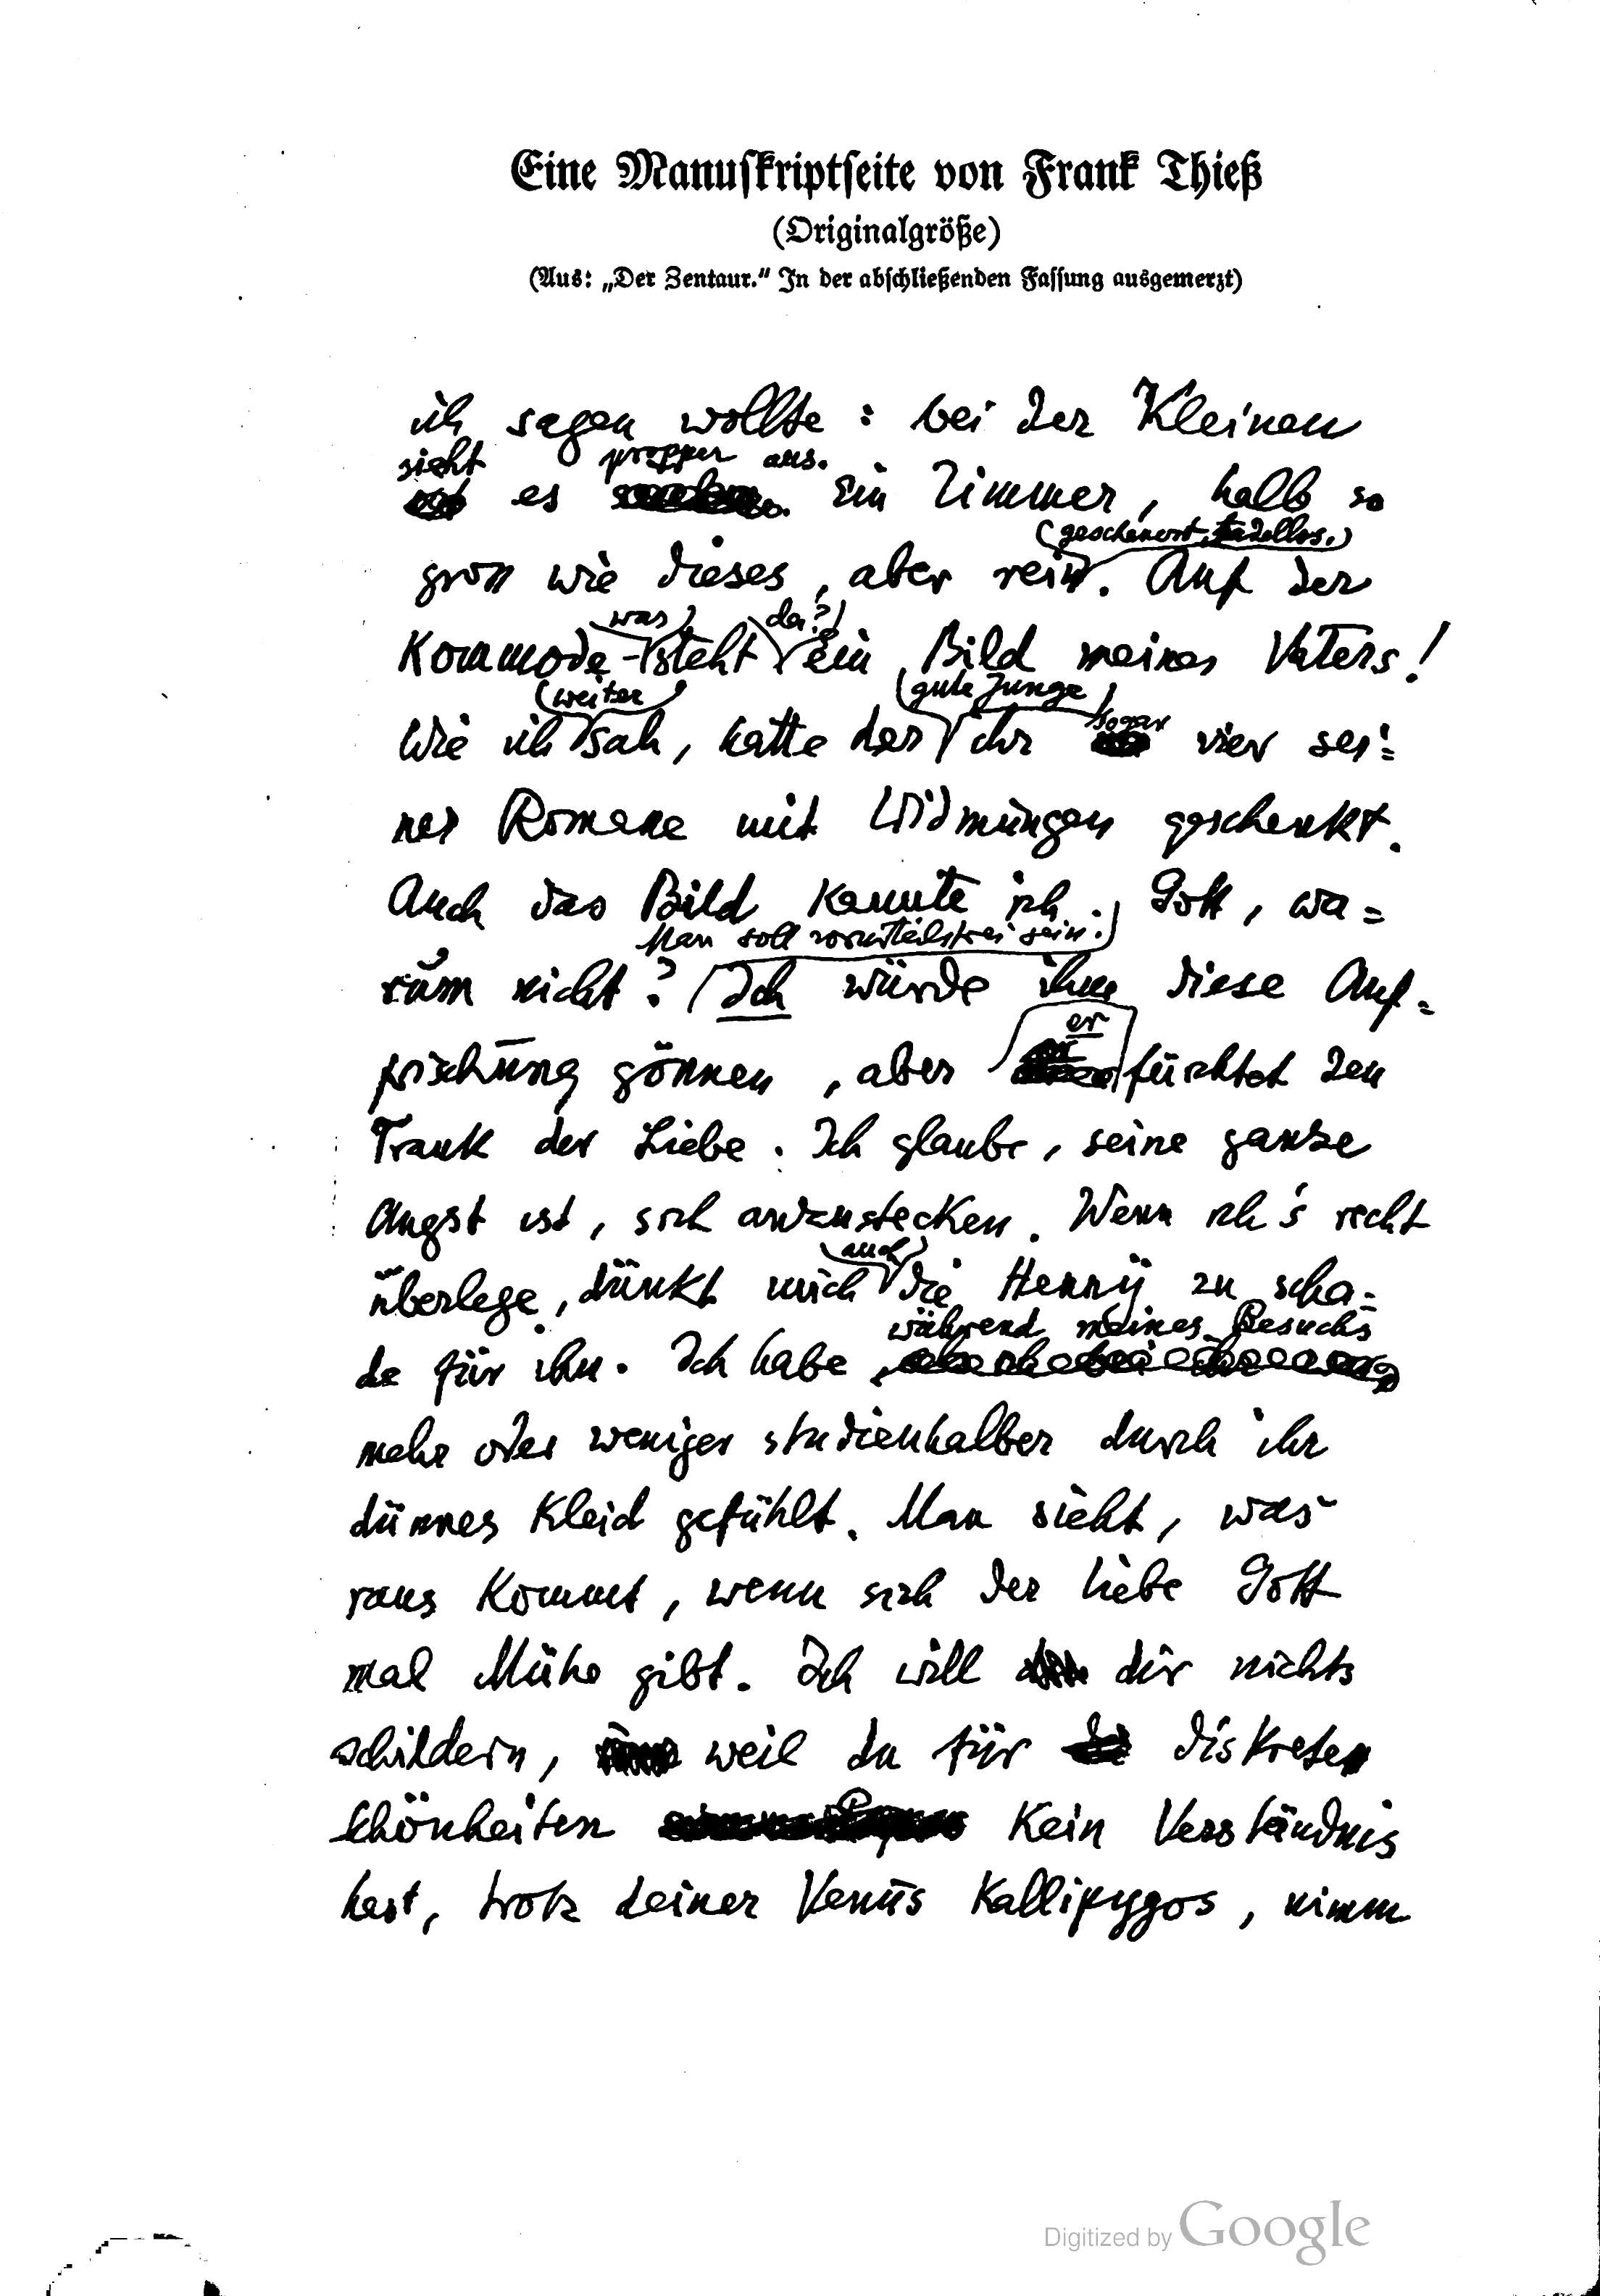 Eine Manuskriptseite von Frank Thieß
(Originalgröße)
(Aus: „Der Zentaur.“ In der abschließenden Fassung ausgemerzt)
ich sagen wollte: bei der Kleinen
sieht propper aus.
es Ein Zimmer, halb so
(gescheuert, tadellos.)
gross wie dieses, aber rein. Auf der
was da?
Kommode - steht ein Bild meines Vaters!
(weiter) (gute Junge) sogar
Wie ich sah, hatte der ihr vier sei=
ner Romane mit Widmungen geschenkt.
Auch das Bild kannte ich. Gott, wa=
Man soll vorurteilsfrei sein.
rum nicht? Ich würde ihm diese Auf=
er
frischung gönnen, aber fürchtet den
Trank der Liebe. Ich glaube, seine ganze
Angst ist, sich anzustecken. Wenn ich's recht
auch
überlege, dünkt mich die Henny zu scha=
während meines Besuchs
de für ihn. Ich habe
mehr oder weniger studienhalber durch ihr
dünnes Kleid gefühlt. Man sieht, was
raus kommt, wenn sich der liebe Gott
mal Mühe gibt. Ich will dir nichts
schildern, weil du für diskrete
Schönheiten kein Verständnis
hast, trotz deiner Venus Kallipygos, nimm
Digitized by Google